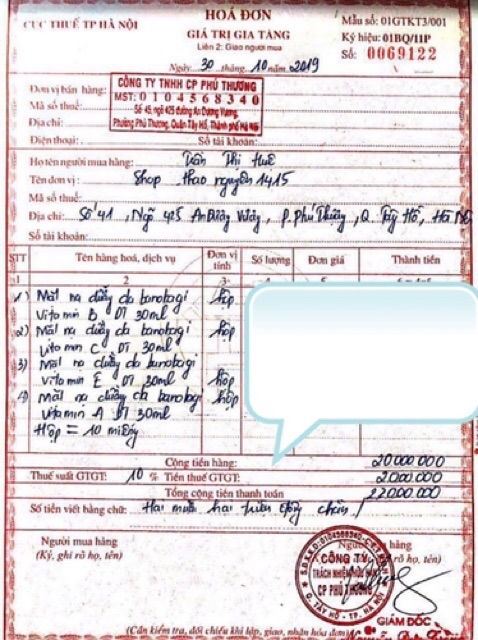 CỤC THUẾ TP HÀ NỘI
HOÁ ĐƠN
GIÁ TRỊ GIA TĂNG
Liên 2: Giao người mua
Ngày 30 tháng 10 năm 2019
Mẫu số: 01GTKT3/001
Ký hiệu: 01BQ/11P
Số: 0069122
Đơn vị bán hàng:
CÔNG TY TNHH CP PHÚ THƯƠNG
Mã số thuế:
MST: 0104568340
Địa chỉ:
Số 45, ngõ 425 đường An Dương Vương,
Phường Phú Thượng, Quận Tây Hồ, Thành phố Hà Nội
Điện thoại:
Số tài khoản:
Họ tên người mua hàng: Trần Thị Huê
Tên đơn vị: Shop thảo nguyên 1415
Mã số thuế:
Địa chỉ: Số 41, Ngõ 425 An Dương Vương, P. Phú Thượng, Q. Tây Hồ, Hà Nội
Số tài khoản:
STT Tên hàng hoá, dịch vụ Đơn vị tính Số lượng Đơn giá Thành tiền
1 2 3
1) Mặt nạ dưỡng da banobagi hộp
Vitamin B DT 30ml
2) Mặt nạ dưỡng da banobagi hộp
Vitamin C DT 30ml
3) Mặt nạ dưỡng da banobagi
Vitamin E DT 30ml hộp
4) Mặt nạ dưỡng da banobagi hộp
Vitamin A DT 30ml
Hộp = 10 miếng
Cộng tiền hàng: 20000000
Thuế suất GTGT: 10 % Tiền thuế GTGT: 2000000
Tổng cộng tiền thanh toán 22000000
Số tiền viết bằng chữ: Hai mươi hai triệu đồng chẵn /
Người mua hàng
(Ký, ghi rõ họ, tên)
Người bán hàng
(Ký, ghi rõ họ, tên)
CÔNG TY
TRÁCH NHIỆM HỮU HẠN
CP PHÚ THƯƠNG
Q. TÂY HỒ - TP. HÀ NỘI
GIÁM ĐỐC
(Cần kiểm tra, đối chiếu khi lập, giao, nhận hoá đơn)